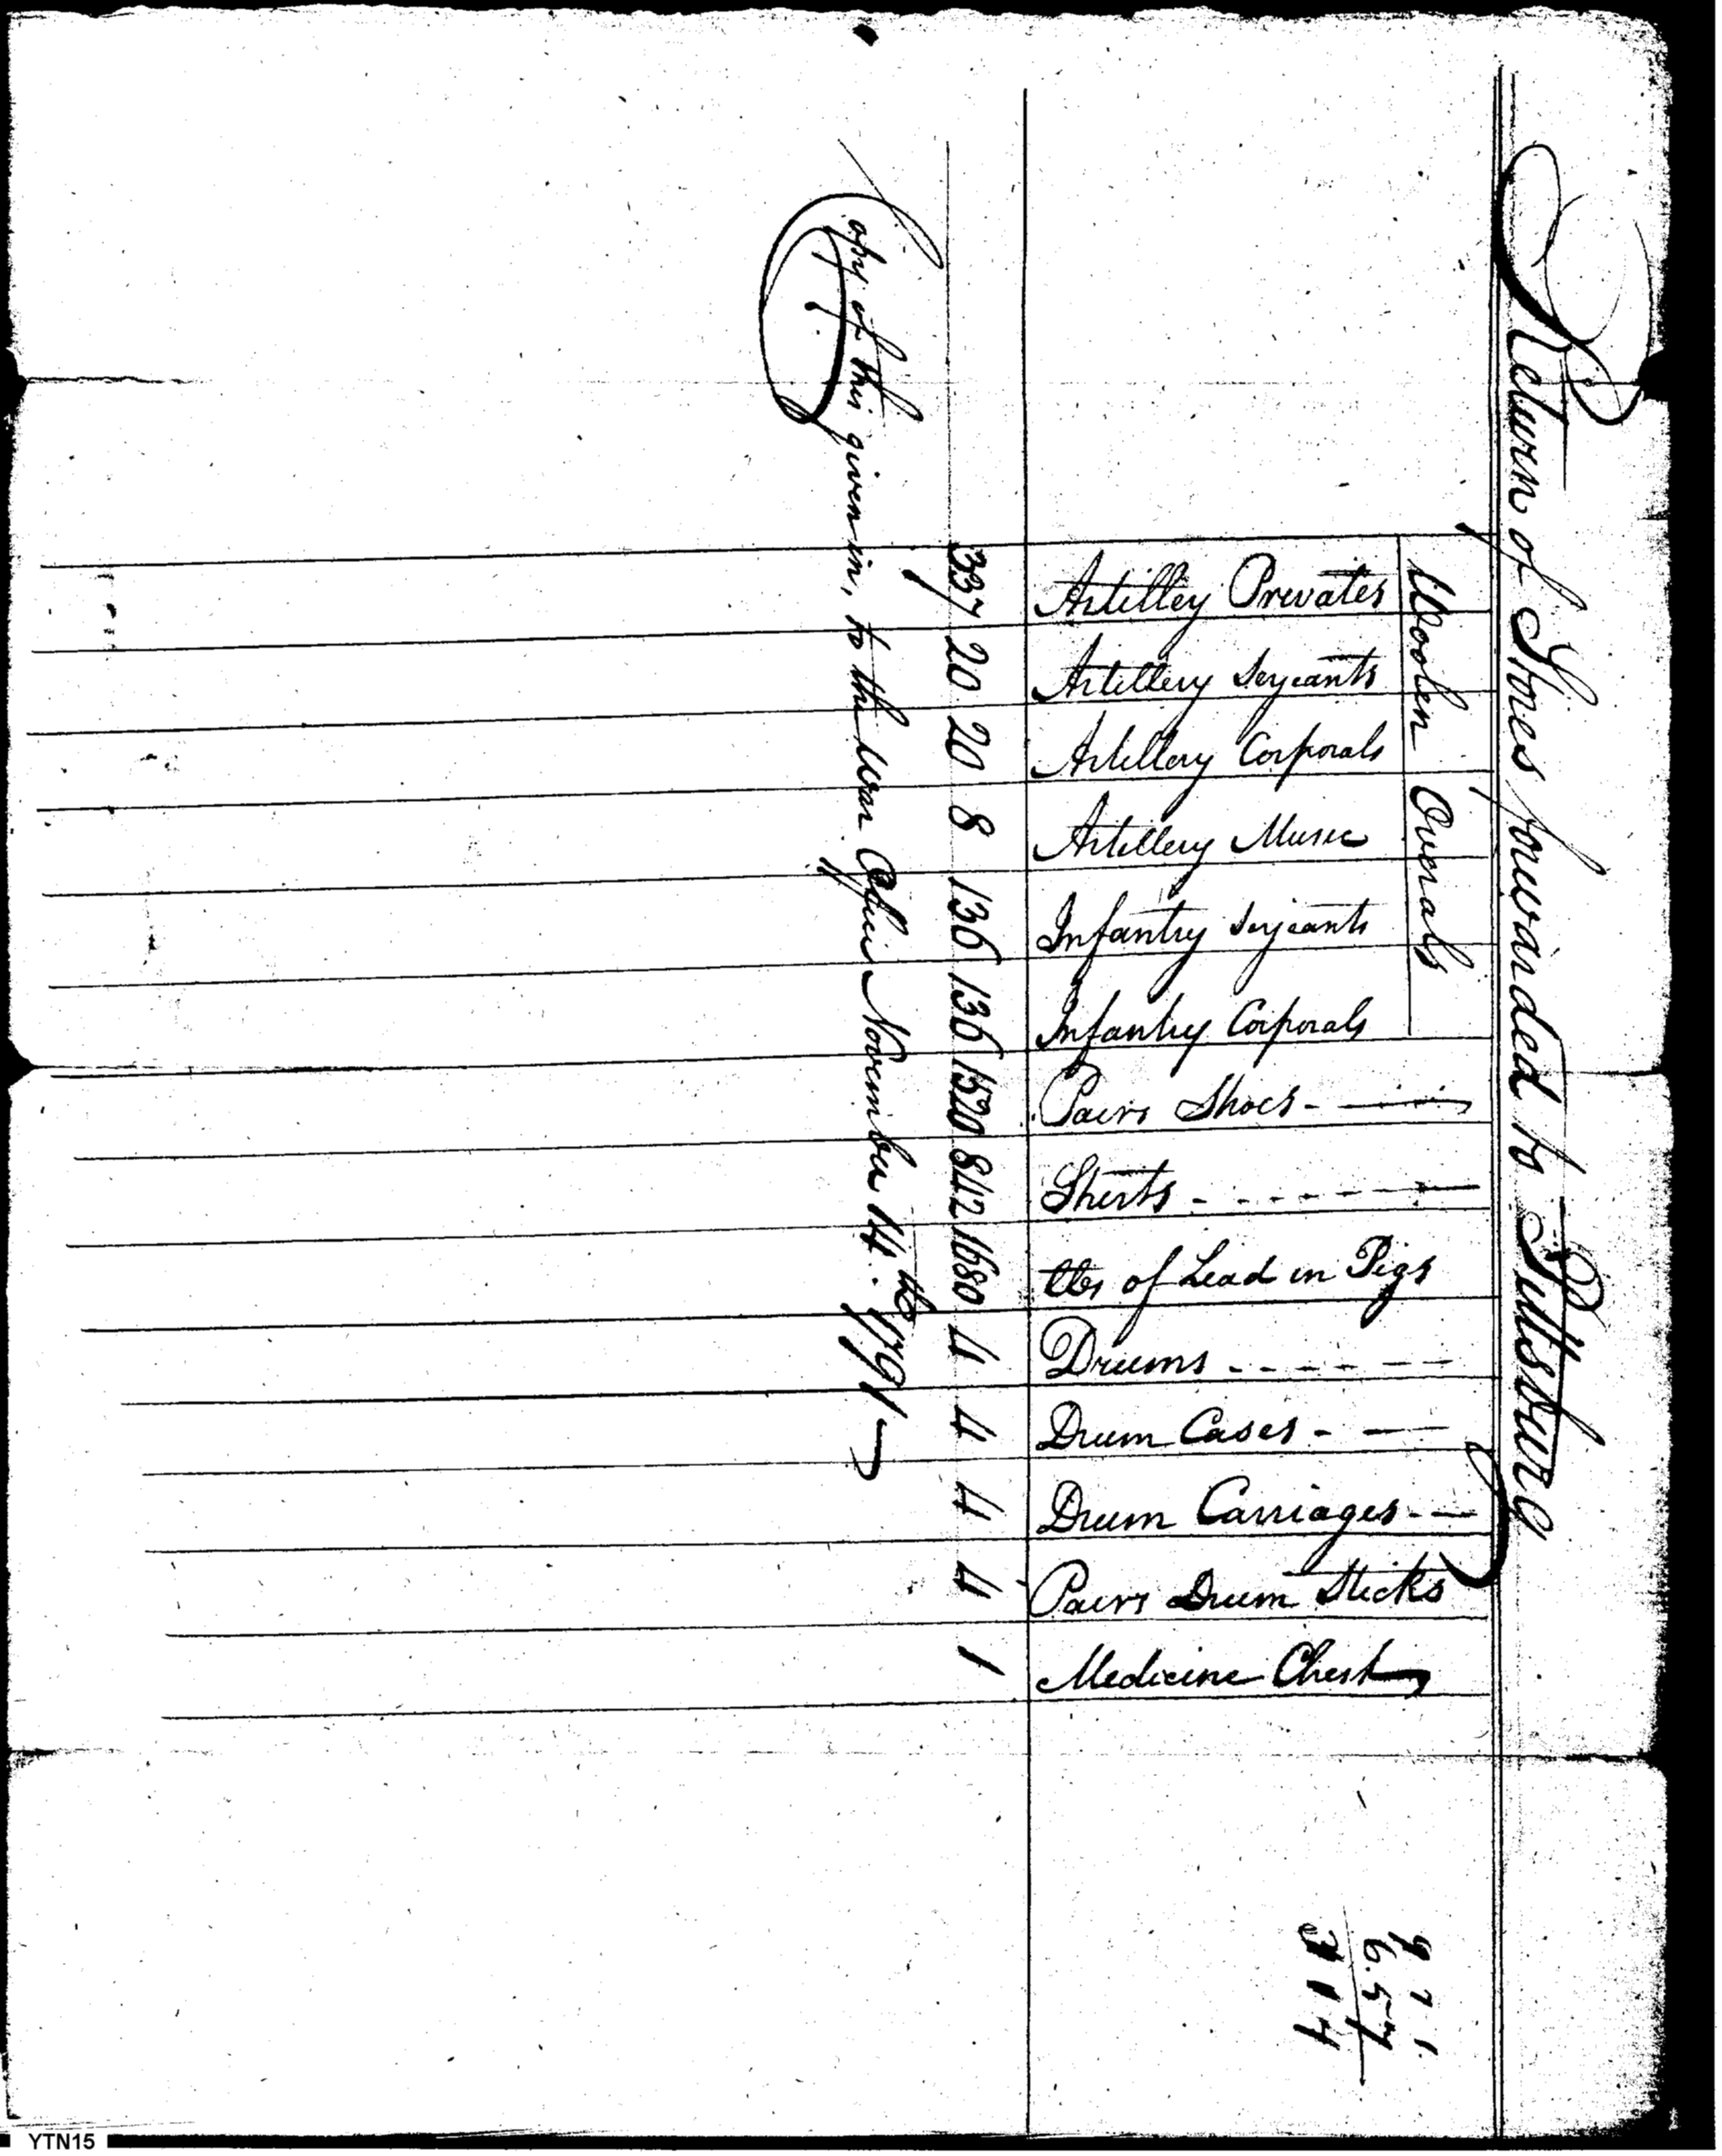 Return of Stores forwarded to Pittsburg
Woolen Overals
Artilley Privates
Artillery Serjeants
Artillery Corporals
Artillery Music
Infantry Serjeants
Infantry Corporals
Pairs Shoes
Sherts
lbs of Lead in Pigs
Drums
Drum Cases
Drum Carriages
Pairs Drum Sticks
Medicine Chest
337 20 20 8 136 136 1520 842 1680 4 4 4 4 1
Copy of this given in, to the War Office November 14th. 1791
9 7 1.
6.57
3 1 4
YTN15